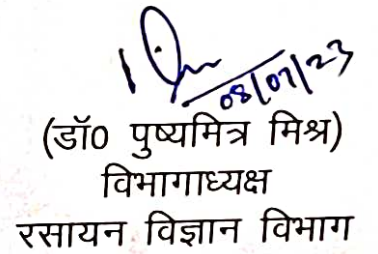 08/07/23
(डॉ0 पुष्यमित्र मिश्र)
विभागाध्यक्ष
रसायन विज्ञान विभाग